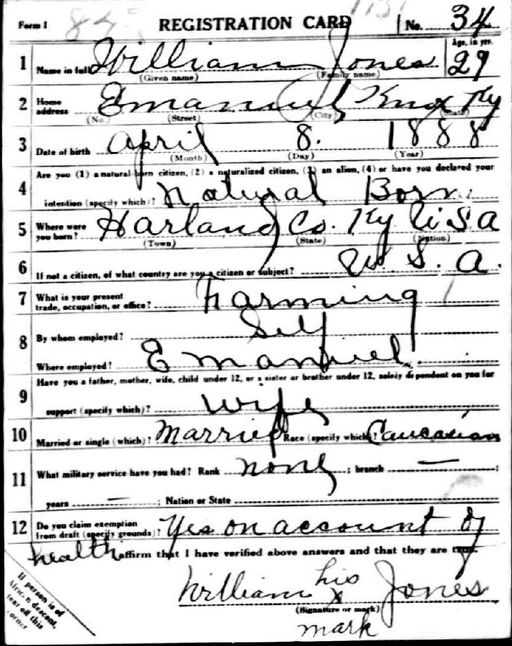 Form 1 REGISTRATION CARD No. 34
1 Name in full William Jones Age, in yrs. 29
(Given name) (Family name)
2 Home address Emanuel Knox Ky
(No.) (Street) (City) (State)
3 Date of birth April 8. 1888
(Month) (Day) (Year)
4 Are you (1) a natural-born citizen, (2) a naturalized citizen, (3) an alien, (4) or have you declared your
intention (specify which)? Natural Born
5 Where were you born? Harland Co. Ky U S a
(Town) (State) (Nation)
6 If not a citizen, of what country are you a citizen or subject? U. S. a.
7 What is your present trade, occupation, or office? Farming
8 By whom employed? Self
Where employed? Emanuel.
9 Have you a father, mother, wife, child under 12, or a sister or brother under 12, solely dependent on you for
support (specify which)? wife
10 Married or single (which)? Married Race (specify which)? Caucasian
11 What military service have you had? Rank none ; branch — ;
years — ; Nation or State
12 Do you claim exemption from draft (specify grounds)? Yes on account of
health
affirm that I have verified above answers and that they are true.
William his x Jones
(Signature or mark)
mark
If person is of
African descent,
tear off this
corner